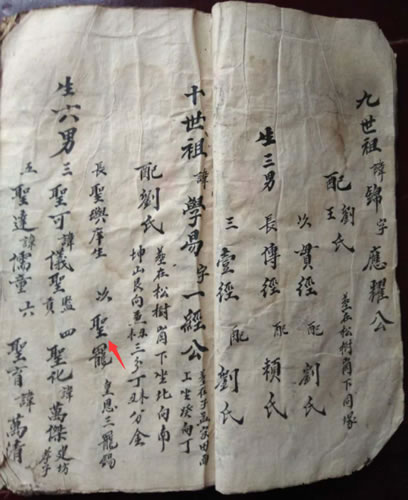 九世祖諱歸字應耀公
配劉氏 王氏 墓在松樹崗下同塚
生三男 長傳經 配 賴氏
次貫經 配 劉氏
三壹經 配 劉氏
十世祖諱學易字一經公
配劉氏 墓在松樹崗下坐北向南
坤山艮向 三 丁 分金
生六男
長聖與庠生 次聖寵 皇恩三寵錫
三聖可諱儀監貢 四聖化諱萬傑建坊孝子
五聖達諱儒童 六聖育諱萬清